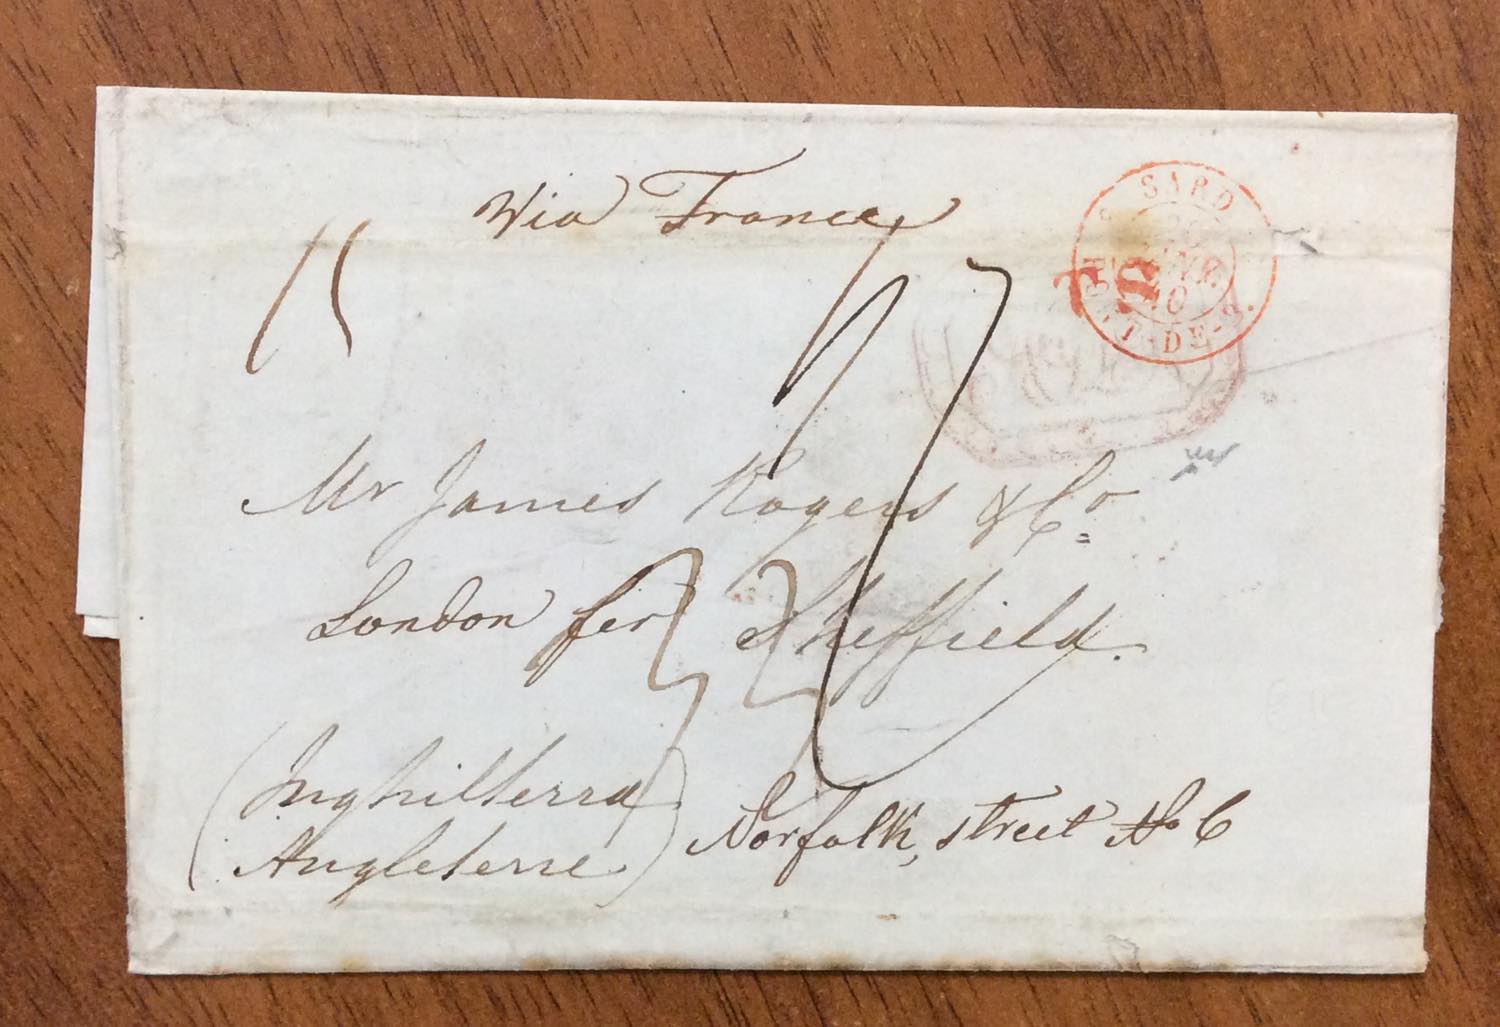 Via France
SARD
PT-DE-B.
Mr James Rogers & Co.
London for Sheffield.
(Inghilterra
Angleterre)
Norfolk, street No 6